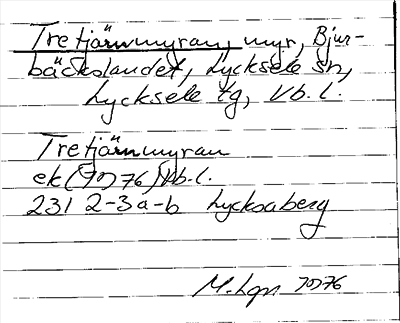 Tretjärnmyran, myr, Bjur-
bäckslandet, Lycksele sn,
Lycksele tg, Vb. l.
Tretjärnmyran
ek (1976) Vb. l.
231 2-3 a-b Lycksaberg
M. Lgn 1976